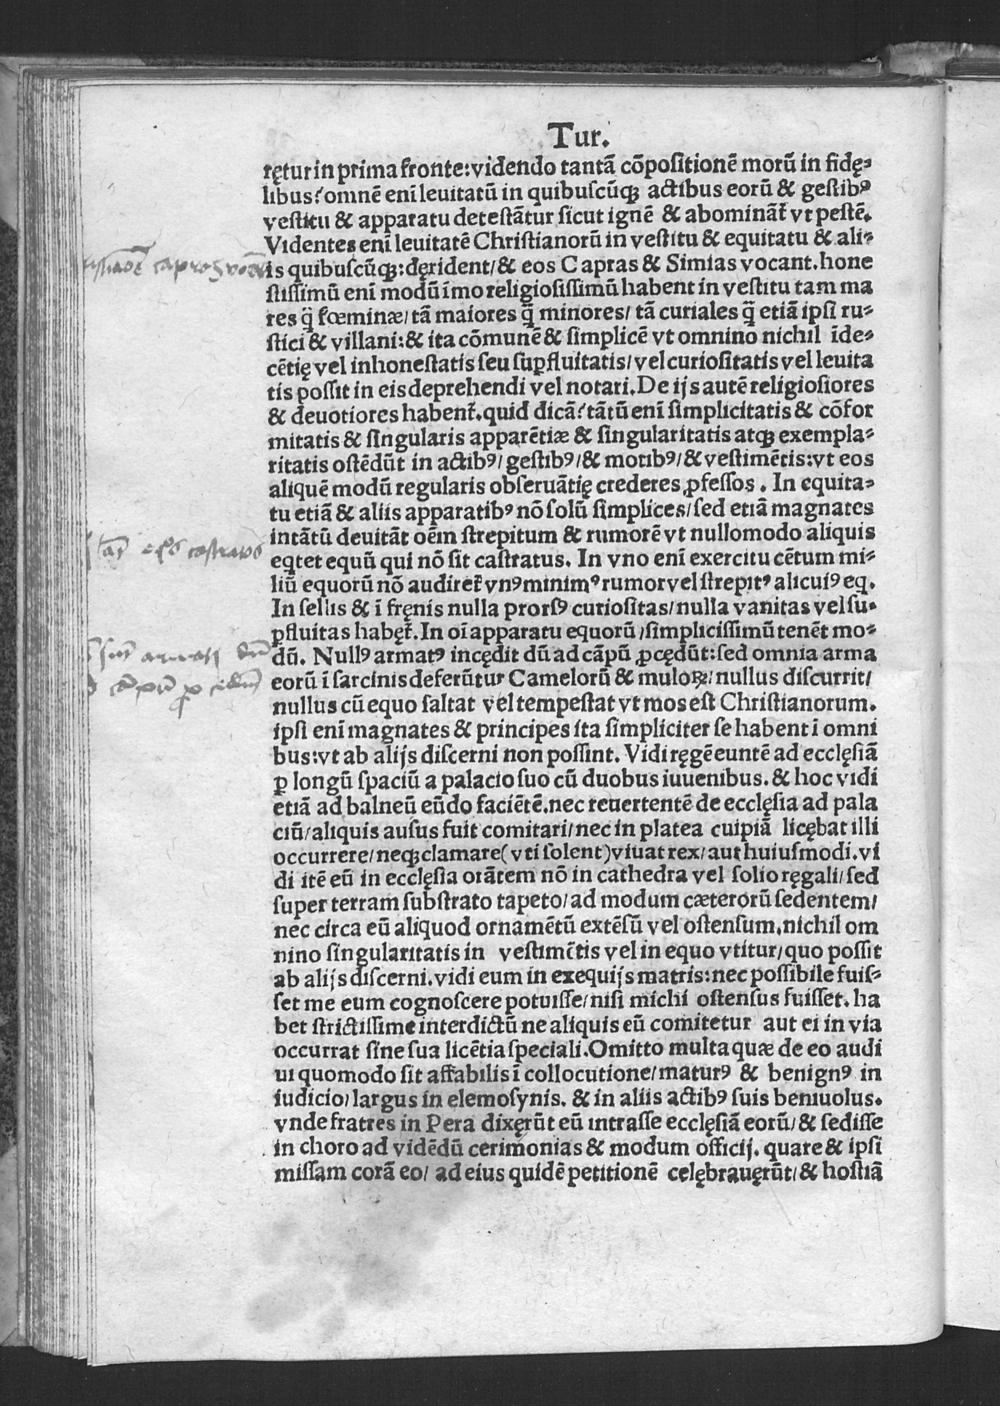 Tur.
rętur in prima fronte:videndo tantã cõpositionẽ morũ in fidę⸗
libus? omnẽ enĩ leuitatũ in quibuscũqꝫ actibus eorũ & gestibꝰ
vestitu & apparatu detestãtur sicut ignẽ & abominãt̃ vt pestẽ.
Videntes enĩ leuitatẽ Christianorũ in vestitu & equitatu & ali⸗
is quibuscũqꝫ:dęrident/& eos Capras & Simias vocant.hone
stissimũ enĩ modũ ĩmo religiosissimũ habent in vestitu tam ma
res q̃̃ fœminæ/tã maiores q̃̃ minores/ tã curiales q̃̃ etiã ipsi ru⸗
stici & villani:& ita cõmunẽ & simplicẽ vt omnino nichil ĩde⸗
cẽtię vel inhonestatis seu suꝑfluitatis/vel curiositatis vel leuita
tis possit in eis deprehendi vel notari.De ijs autẽ religiosiores
& deuotiores habent̃.quid dicã? tãtũ enĩ simplicitatis & cõfor
mitatis & singularis apparẽtiæ & singularitatis atqꝫ exempla⸗
ritatis ostẽdũt in actibꝰ/gestibꝰ/& motibꝰ/& vestimẽtis:vt eos
aliquẽ modũ regularis obseruãtię crederes ꝓfessos. In equita⸗
tu etiã & aliis apparatibꝰ nõ solũ simplices/sed etiã magnates
intãtũ deuitãt oẽm strepitum & rumorẽ vt nullomodo aliquis
eqtet equũ qui nõ sit castratus. In vno enĩ exercitu cẽtum mi⸗
liũ equorũ nõ audiret̃ vnꝰ minimꝰ rumor vel strepitꝰ alicuiꝰ eq.
In sellis & ĩ fręnis nulla prorsꝰ curiositas/nulla vanitas vel su⸗
ꝑfluitas habęt̃. In oĩ apparatu equorũ/simplicissimũ tenẽt mo⸗
dũ. Nullꝰ armatꝰ incędit dũ ad cãpũ ꝓcędũt:sed omnia arma
eorũ ĩ sarcinis deferũtur Camelorũ & muloꝝ/nullus discurrit/
nullus cũ equo saltat vel tempestat vt mos est Christianorum.
ipsi enĩ magnates & principes ita simpliciter se habent ĩ omni
bus:vt ab alijs discerni non possint. Vidi ręgẽ euntẽ ad ecclęsiã
ꝑ longũ spaciũ a palacio suo cũ duobus iuuenibus. & hoc vidi
etiã ad balneũ eũdo faciẽtẽ.nec reuertentẽ de ecclęsia ad pala
ciũ/aliquis ausus fuit comitari/nec in platea cuipiã licębat illi
occurrere/neqꝫ clamare(vti solent)viuat rex/aut huiusmodi.vi
di itẽ eũ in ecclęsia orãtem nõ in cathedra vel solio ręgali/sed
super terram substrato tapeto/ad modum cæterorũ sedentem/
nec circa eũ aliquod ornamẽtũ extẽsũ vel ostensum.nichil om
nino singularitatis in vestimẽtis vel in equo vtitur/quo possit
ab alijs discerni.vidi eum in exequijs matris:nec possibile fuis⸗
set me eum cognoscere potuisse/nisi michi ostensus fuisset. ha
bet strictissime interdictũ ne aliquis eũ comitetur aut ei in via
occurrat sine sua licẽtia speciali.Omitto multa quæ de eo audi
ui quomodo sit affabilis ĩ collocutione/maturꝰ & benignꝰ in
iudicio/largus in elemosynis. & in aliis actibꝰ suis beniuolus.
vnde fratres in Pera dixęrũt eũ intrasse ecclęsiã eorũ/& sedisse
in choro ad vidẽdũ cerimonias & modum officij. quare & ipsi
missam corã eo/ ad eius quidẽ petitionẽ celębrauęrũt/& hostiã
castratos